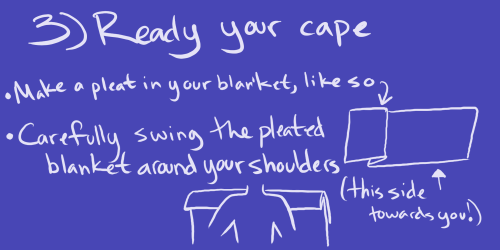 3) Ready your cape
• Make a pleat in your blanket, like so
• Carefully swing the pleated
blanket around your shoulders
(this side
towards you!)